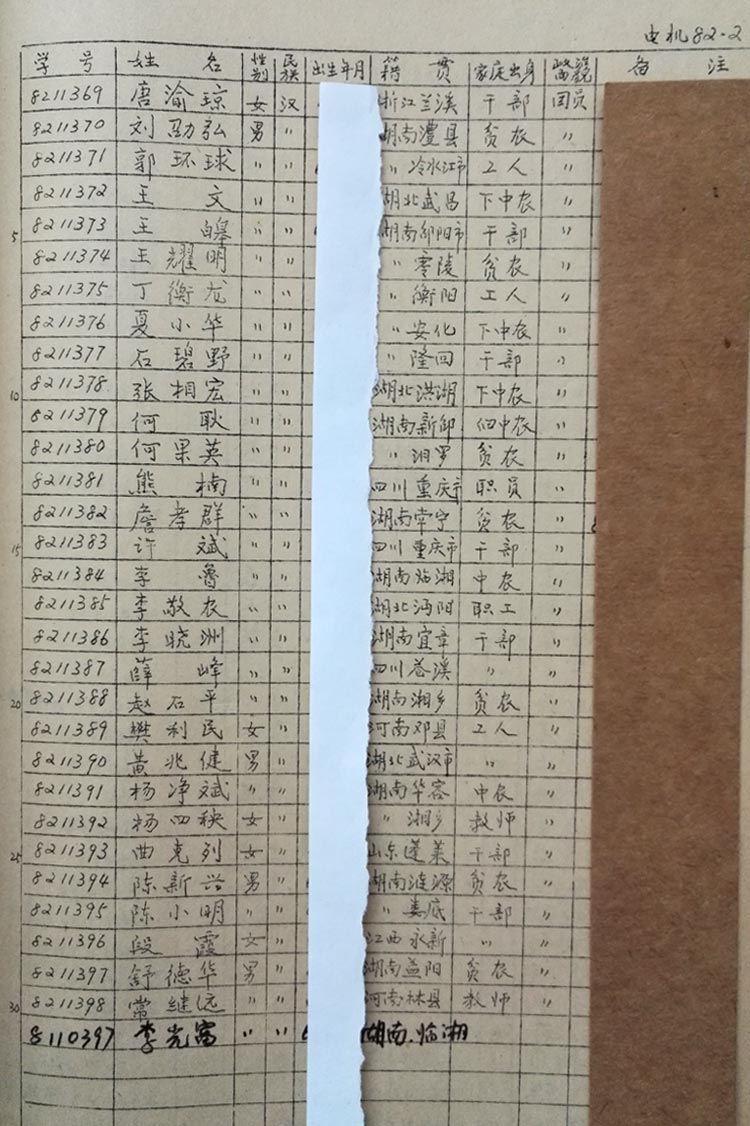 电机82-2
学号 姓名 性别 民族 出生年月 籍贯 家庭出身 党龄 备注
8211369 唐渝琼 女 汉 浙江兰溪 干部 团员
8211370 刘劲弘 男 〃 湖南澧县 贫农 〃
8211371 郭环球 〃 〃 〃 冷水江市 工人 〃
8211372 王文 〃 〃 湖北武昌 下中农 〃
5 8211373 王皞 〃 〃 湖南邵阳市 干部 〃
8211374 王耀明 〃 〃 〃 零陵 贫农 〃
8211375 丁衡龙 〃 〃 〃 衡阳 工人 〃
8211376 夏小华 〃 〃 〃 安化 下中农 〃
8211377 石碧野 〃 〃 〃 隆回 干部 〃
10 8211378 张相宏 〃 〃 湖北洪湖 下中农 〃
8211379 何耿 〃 〃 湖南新邵 佃中农 〃
8211380 何果英 〃 〃 〃 汨罗 贫农 〃
8211381 熊楠 〃 〃 四川重庆市 职员 〃
8211382 詹孝群 〃 〃 湖南常宁 贫农 〃
15 8211383 许斌 〃 〃 四川重庆市 干部 〃
8211384 李鲁 〃 〃 湖南临湘 中农 〃
8211385 李敬农 〃 〃 湖北沔阳 职工 〃
8211386 李晓洲 〃 〃 湖南宜章 干部 〃
8211387 薛峰 〃 〃 四川苍溪 〃 〃
20 8211388 赵石平 〃 〃 湖南湘乡 贫农 〃
8211389 樊利民 女 〃 河南邓县 工人 〃
8211390 黄兆健 男 〃 湖北武汉市 〃 〃
8211391 杨净斌 〃 〃 湖南华容 中农 〃
8211392 杨四秧 女 〃 〃 湘乡 教师 〃
25 8211393 曲克列 女 〃 山东蓬莱 干部 〃
8211394 陈新兴 男 〃 湖南涟源 贫农 〃
8211395 陈小明 〃 〃 〃 娄底 干部 〃
8211396 段霞 女 〃 江西永新 〃 〃
8211397 舒德华 男 〃 湖南益阳 贫农 〃
30 8211398 常继远 〃 〃 河南林县 教师 〃
8110397 李光富 〃 〃 湖南.临湘